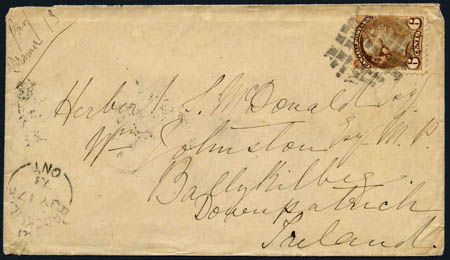 Herbert S. McDonald Esq
Wm Johnston Esq M.P.
Ballykilbeg
Downpatrick
Ireland
6 CENTS 6
BROCKVILLE
JY 17
ONT